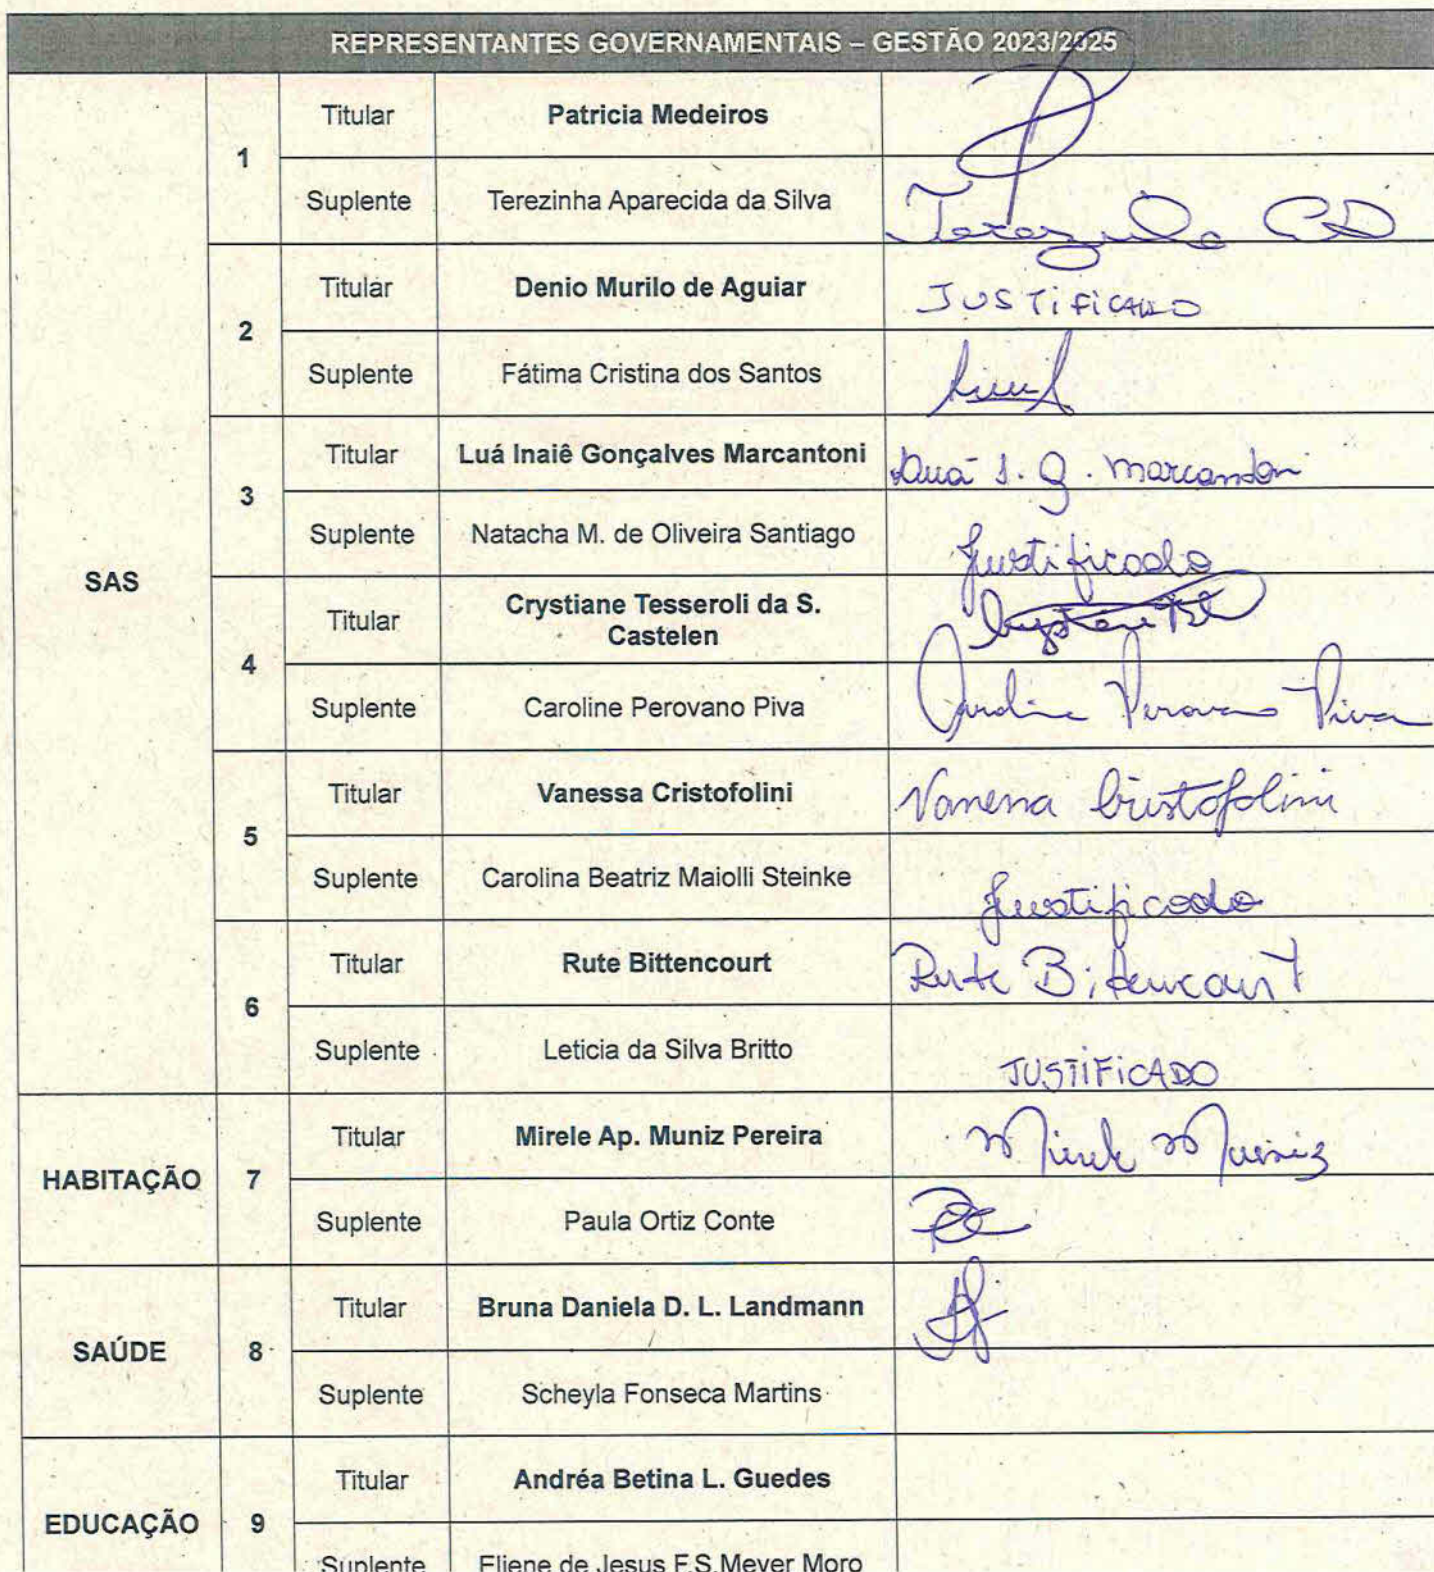 REPRESENTANTES GOVERNAMENTAIS – GESTÃO 2023/2025
SAS
1
Titular Patricia Medeiros
Suplente Terezinha Aparecida da Silva
2
Titular Denio Murilo de Aguiar JUSTIFICADO
Suplente Fátima Cristina dos Santos
3
Titular Luá Inaiê Gonçalves Marcantoni Luá I. G. Marcantoni
Suplente Natacha M. de Oliveira Santiago Justificado
4
Titular Crystiane Tesseroli da S.
Castelen
Suplente Caroline Perovano Piva Caroline Perovano Piva
5
Titular Vanessa Cristofolini Vanessa Cristofolini
Suplente Carolina Beatriz Maiolli Steinke Justificado
6
Titular Rute Bittencourt Rute Bittencourt
Suplente Leticia da Silva Britto JUSTIFICADO
HABITAÇÃO
7
Titular Mirele Ap. Muniz Pereira Mirele Muniz
Suplente Paula Ortiz Conte
SAÚDE
8
Titular Bruna Daniela D. L. Landmann
Suplente Scheyla Fonseca Martins
EDUCAÇÃO
9
Titular Andréa Betina L. Guedes
Suplente Eliene de Jesus F.S.Meyer Moro